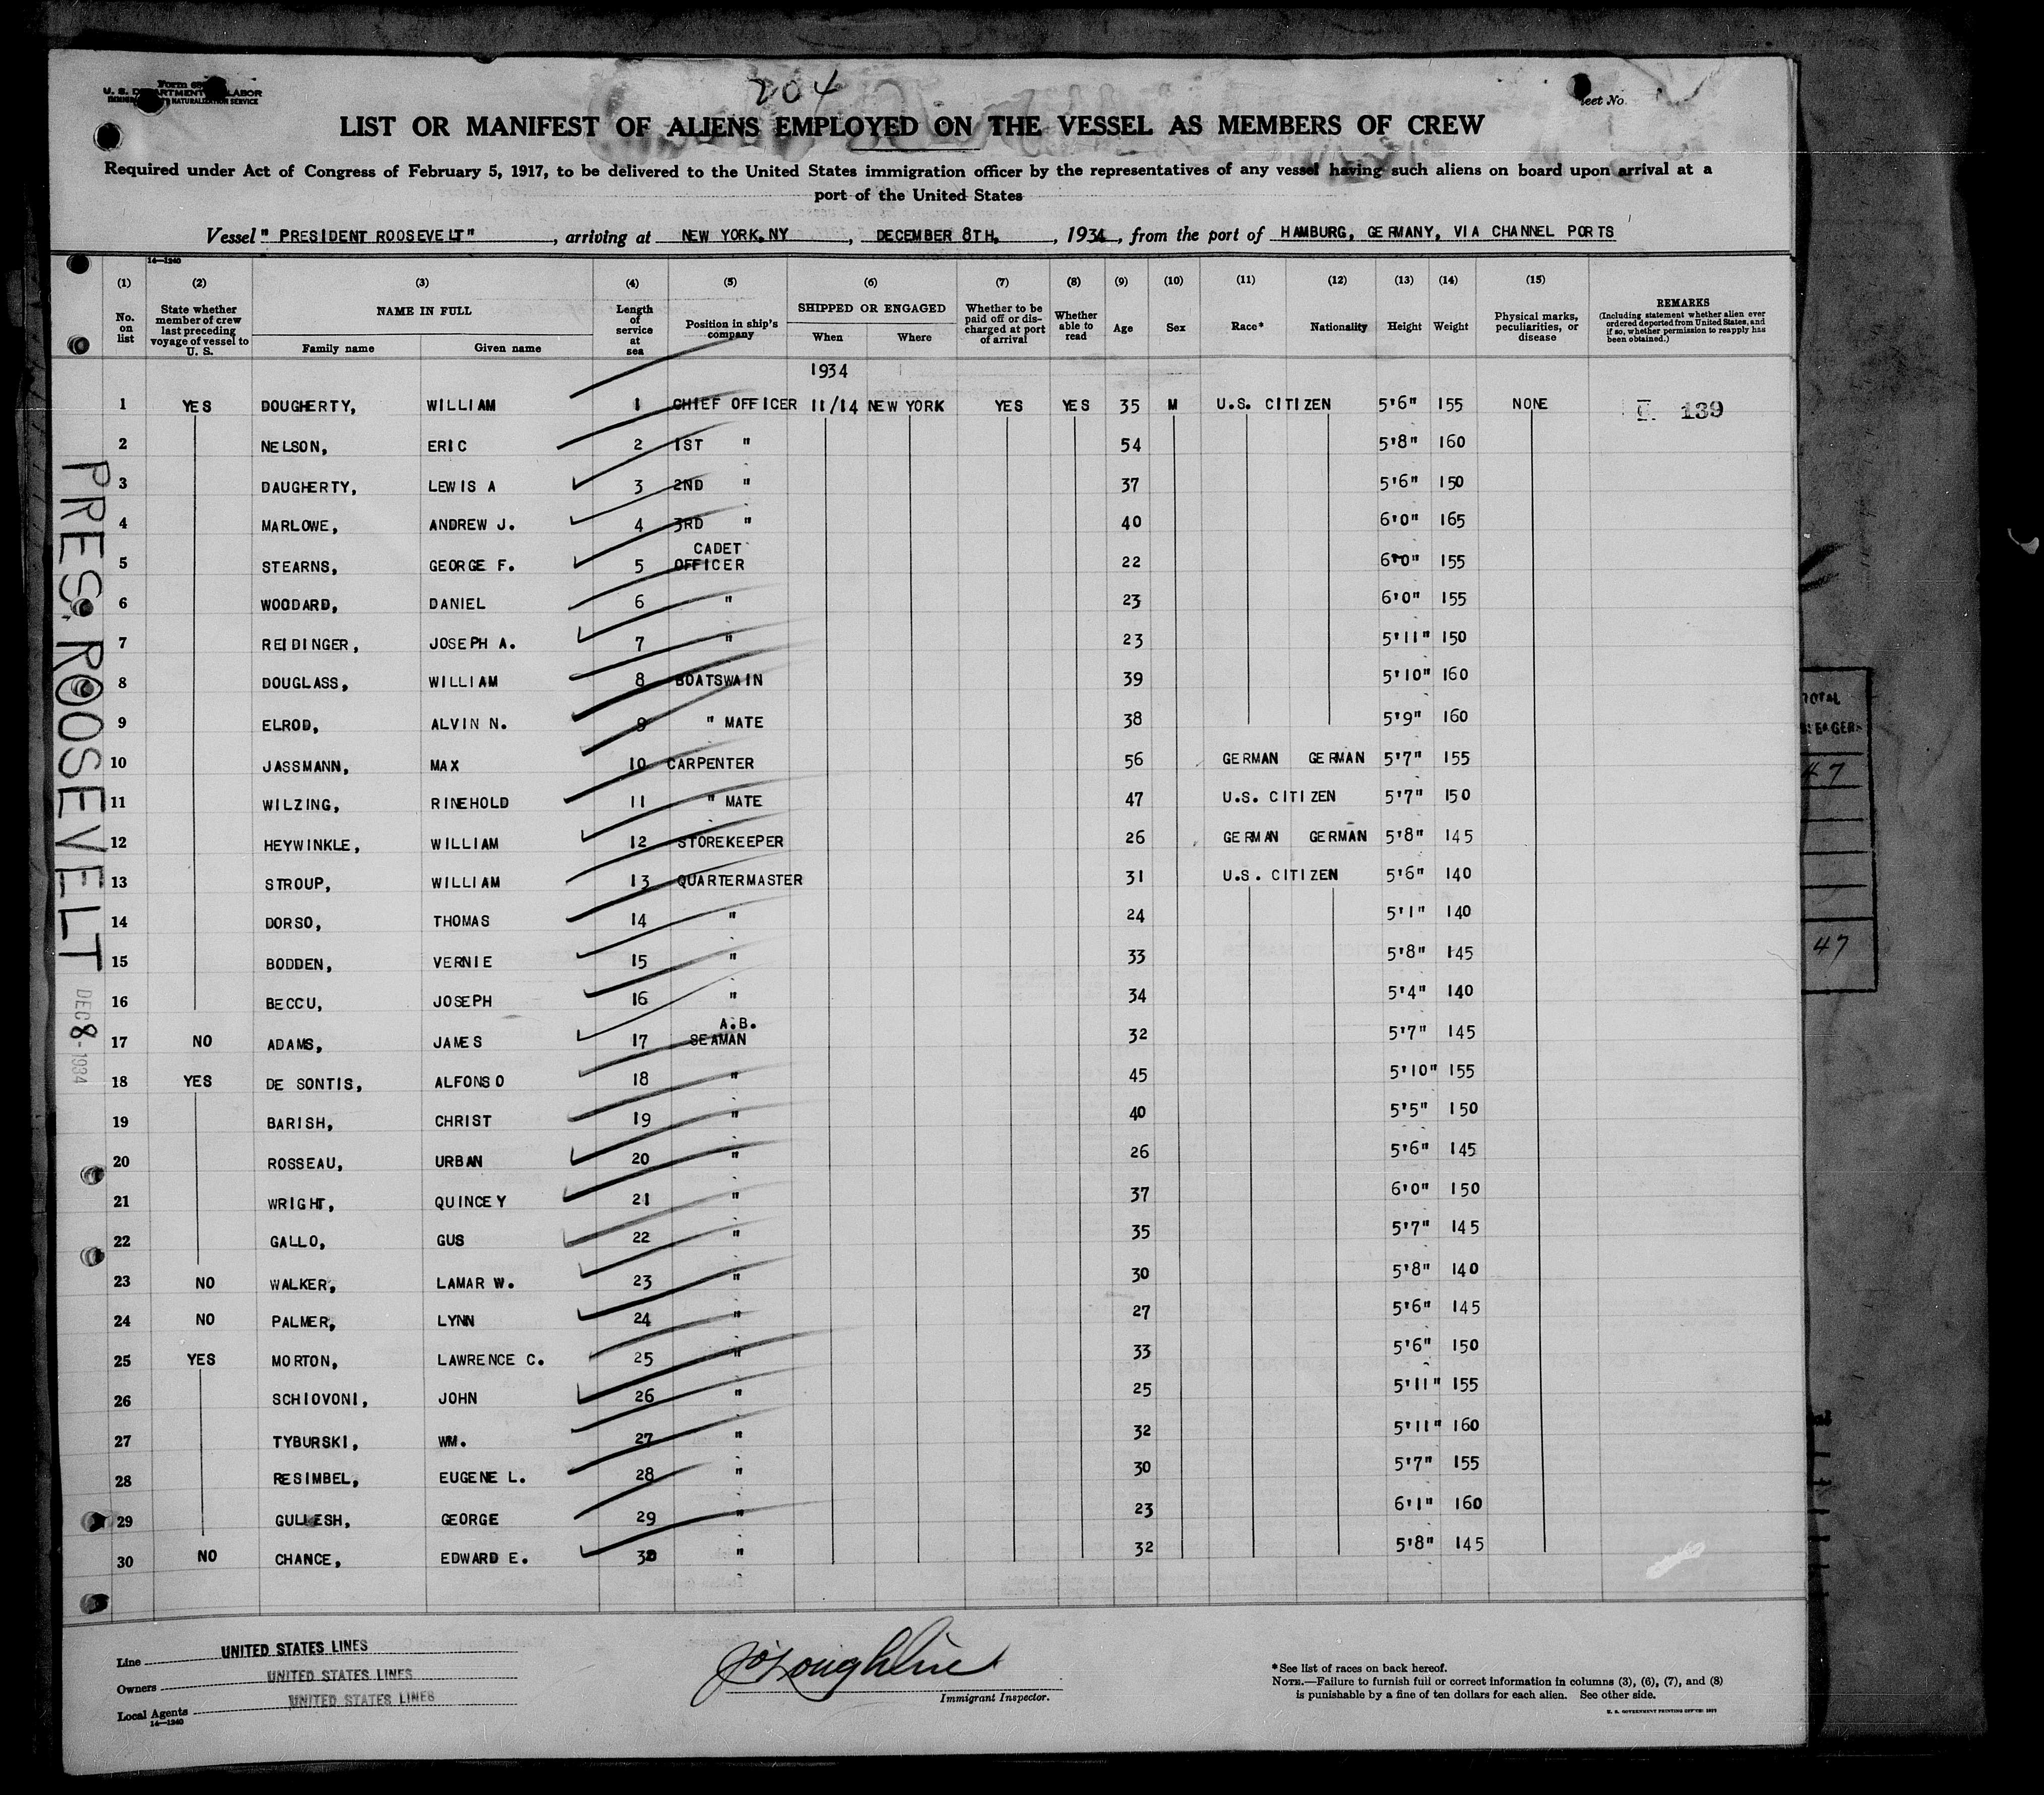 204
U. S. DEPARTMENT LABOR
NATURALIZATION SERVICE
No.
LIST OR MANIFEST OF ALIENS EMPLOYED ON THE VESSEL AS MEMBERS OF CREW
Required under Act of Congress of February 5, 1917, to be delivered to the United States immigration officer by the representatives of any vessel having such aliens on board upon arrival at a
port of the United States
Vessel "PRESIDENT ROOSEVELT", arriving at NEW YORK, NY, DECEMBER 8TH, 1934, from the port of HAMBURG, GERMANY, VIA CHANNEL PORTS
14—1240
(1) (2) (3) (4) (5) (6) (7) (8) (9) (10) (11) (12) (13) (14) (15)
No. on list State whether member of crew last preceding voyage of vessel to U. S. NAME IN FULL Family name Given name Length of service at sea Position in ship's company SHIPPED OR ENGAGED When Where Whether to be paid off or discharged at port of arrival Whether able to read Age Sex Race* Nationality Height Weight Physical marks, peculiarities, or disease REMARKS (Including statement whether alien ever ordered deported from United States, and if so, whether permission to reapply has been obtained.)
1934
1 YES DOUGHERTY, WILLIAM 1 CHIEF OFFICER 11/14 NEW YORK YES YES 35 M U.S. CITIZEN 5'6" 155 NONE 139
2 NELSON, ERIC 2 1ST " 54 5'8" 160
3 DAUGHERTY, LEWIS A 3 2ND " 37 5'6" 150
4 MARLOWE, ANDREW J. 4 3RD " 40 6'0" 165
5 STEARNS, GEORGE F. 5 CADET OFFICER 22 6'0" 155
6 WOODARD, DANIEL 6 " 23 6'0" 155
7 REIDINGER, JOSEPH A. 7 " 23 5'11" 150
8 DOUGLASS, WILLIAM 8 BOATSWAIN 39 5'10" 160
9 ELROD, ALVIN N. 9 " MATE 38 5'9" 160
10 JASSMANN, MAX 10 CARPENTER 56 GERMAN GERMAN 5'7" 155
11 WILZING, RINEHOLD 11 " MATE 47 U.S. CITIZEN 5'7" 150
12 HEYWINKLE, WILLIAM 12 STOREKEEPER 26 GERMAN GERMAN 5'8" 145
13 STROUP, WILLIAM 13 QUARTERMASTER 31 U.S. CITIZEN 5'6" 140
14 DORSO, THOMAS 14 " 24 5'1" 140
15 BODDEN, VERNIE 15 " 33 5'8" 145
16 BECCU, JOSEPH 16 " 34 5'4" 140
17 NO ADAMS, JAMES 17 A.B. SEAMAN 32 5'7" 145
18 YES DE SONTIS, ALFONSO 18 " 45 5'10" 155
19 BARISH, CHRIST 19 " 40 5'5" 150
20 ROSSEAU, URBAN 20 " 26 5'6" 145
21 WRIGHT, QUINCEY 21 " 37 6'0" 150
22 GALLO, GUS 22 " 35 5'7" 145
23 NO WALKER, LAMAR W. 23 " 30 5'8" 140
24 NO PALMER, LYNN 24 " 27 5'6" 145
25 YES MORTON, LAWRENCE C. 25 " 33 5'6" 150
26 SCHIOVONI, JOHN 26 " 25 5'11" 155
27 TYBURSKI, WM. 27 " 32 5'11" 160
28 RESIMBEL, EUGENE L. 28 " 30 5'7" 155
29 GULLESH, GEORGE 29 " 23 6'1" 160
30 NO CHANCE, EDWARD E. 30 " 32 5'8" 145
PRES. ROOSEVELT
DEC 8 - 1934
TOTAL
47
47
Line UNITED STATES LINES
Owners UNITED STATES LINES
Local Agents UNITED STATES LINES
14—1240
Immigrant Inspector.
*See list of races on back hereof.
NOTE.—Failure to furnish full or correct information in columns (3), (6), (7), and (8)
is punishable by a fine of ten dollars for each alien. See other side.